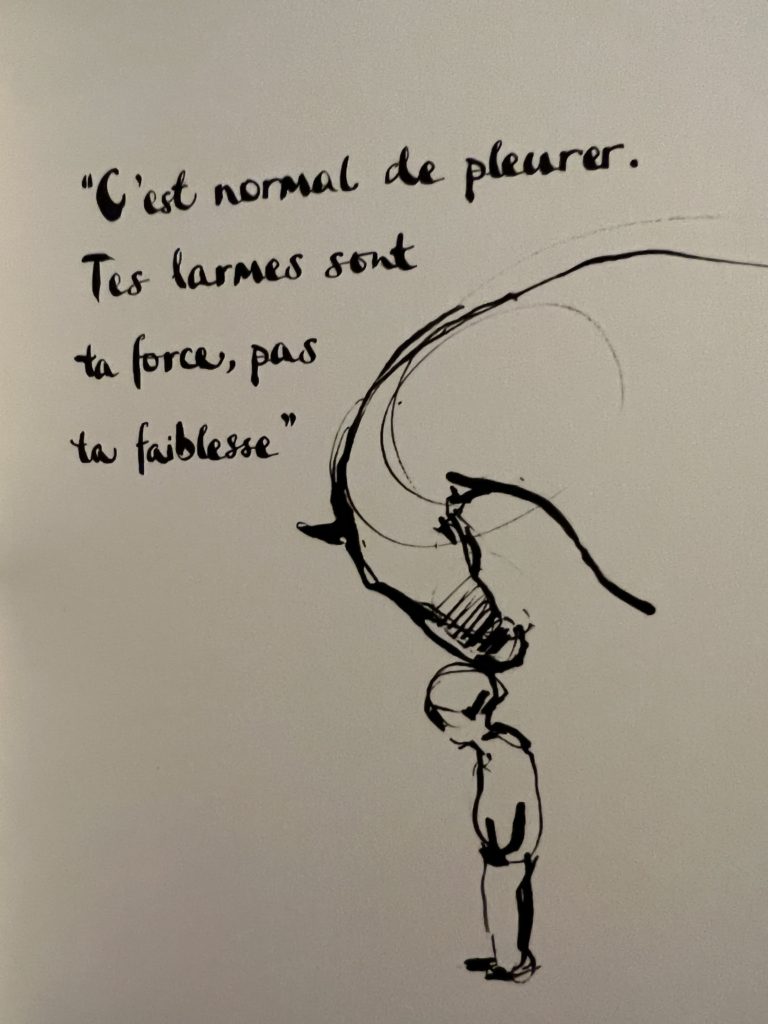 "C'est normal de pleurer.
Tes larmes sont
ta force, pas
ta faiblesse"